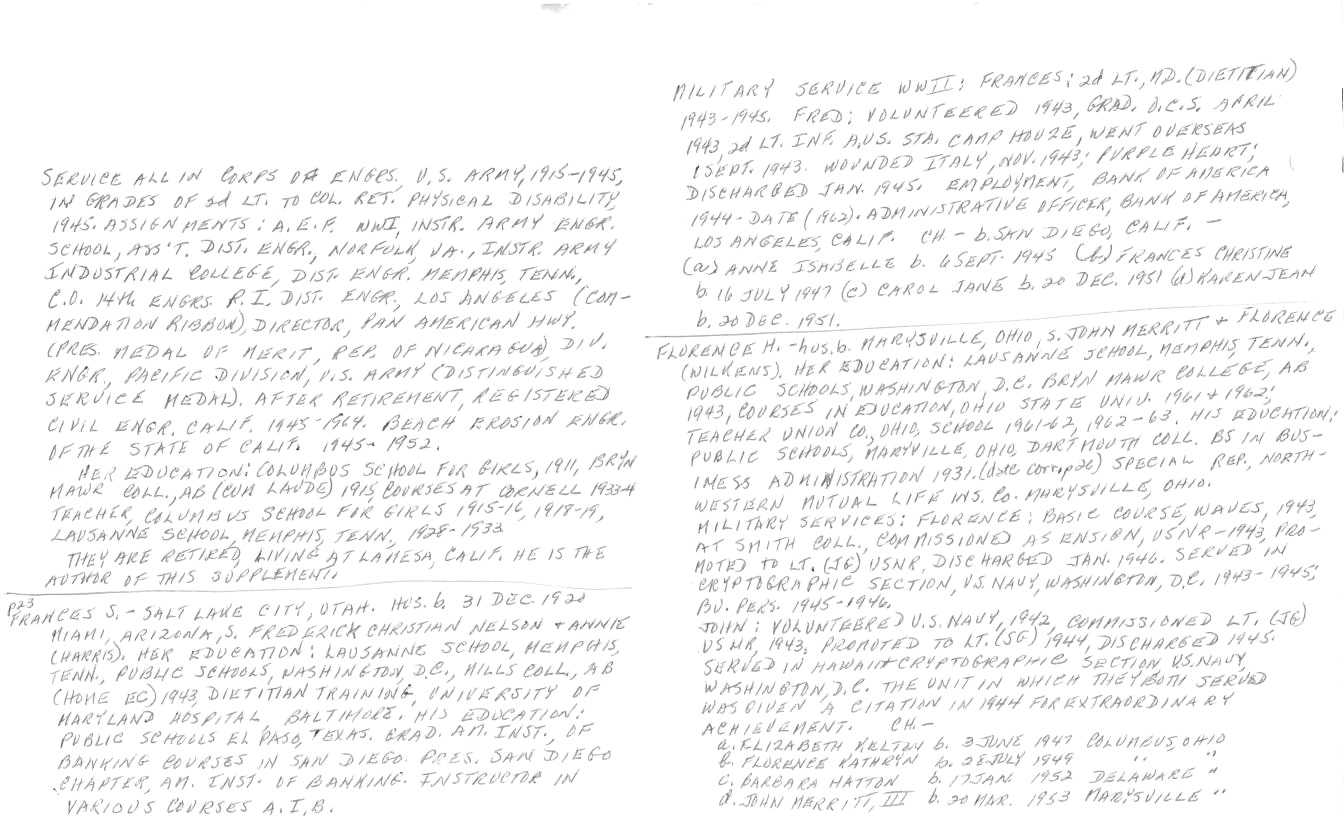 SERVICE ALL IN CORPS OF ENGRS. U.S. ARMY, 1915-1945,
IN GRADES OF 2d LT. TO COL. RET. PHYSICAL DISABILITY,
1945. ASSIGNMENTS: A.E.F. WWI, INSTR. ARMY ENGR.
SCHOOL, ASS'T. DIST. ENGR., NORFOLK, VA., INSTR. ARMY
INDUSTRIAL COLLEGE, DIST. ENGR. MEMPHIS, TENN.,
C.O. 14th ENGRS. P.I. DIST. ENGR., LOS ANGELES (COM-
MENDATION RIBBON), DIRECTOR, PAN AMERICAN HWY.
(PRES. MEDAL OF MERIT, REP. OF NICARAGUA) DIV.
ENGR., PACIFIC DIVISION, U.S. ARMY (DISTINGUISHED
SERVICE MEDAL). AFTER RETIREMENT, REGISTERED
CIVIL ENGR. CALIF. 1945-1964. BEACH EROSION ENGR.
OF THE STATE OF CALIF. 1945-1952.
HER EDUCATION: COLUMBUS SCHOOL FOR GIRLS, 1911, BRYN
MAWR COLL., AB (CUM LAUDE) 1915, COURSES AT CORNELL 1933-4
TEACHER, COLUMBUS SCHOOL FOR GIRLS 1915-16, 1918-19,
LAUSANNE SCHOOL, MEMPHIS, TENN., 1928-1933
THEY ARE RETIRED, LIVING AT LAMESA, CALIF. HE IS THE
AUTHOR OF THIS SUPPLEMENT.
P23
FRANCES S. - SALT LAKE CITY, UTAH. HUS. b. 31 DEC. 1920
MIAMI, ARIZONA, S. FREDERICK CHRISTIAN NELSON + ANNIE
(HARRIS). HER EDUCATION: LAUSANNE SCHOOL, MEMPHIS,
TENN., PUBLIC SCHOOLS, WASHINGTON, D.C., MILLS COLL., AB
(HOME EC) 1943, DIETITIAN TRAINING, UNIVERSITY OF
MARYLAND HOSPITAL, BALTIMORE. HIS EDUCATION:
PUBLIC SCHOOLS EL PASO, TEXAS. GRAD. AM. INST., OF
BANKING COURSES IN SAN DIEGO. PRES. SAN DIEGO
CHAPTER, AM. INST. OF BANKING. INSTRUCTOR IN
VARIOUS COURSES A.I.B.
MILITARY SERVICE WWII: FRANCES: 2d LT., MD. (DIETITIAN)
1943-1945. FRED: VOLUNTEERED 1943, GRAD. O.C.S. APRIL
1943, 2d LT. INF. A.U.S. STA. CAMP HOUZE, WENT OVERSEAS
1 SEPT. 1943. WOUNDED ITALY, NOV. 1943; PURPLE HEART;
DISCHARGED JAN. 1945. EMPLOYMENT, BANK OF AMERICA
1944 - DATE (1962). ADMINISTRATIVE OFFICER, BANK OF AMERICA,
LOS ANGELES, CALIF. CH - b. SAN DIEGO, CALIF. -
(a) ANNE ISABELLE b. 6 SEPT. 1945 (b) FRANCES CHRISTINE
b. 16 JULY 1947 (c) CAROL JANE b. 20 DEC. 1951 (d) KAREN JEAN
b. 20 DEC. 1951.
FLORENCE H. - hus. b. MARYSVILLE, OHIO, S. JOHN MERRITT + FLORENCE
(WILKENS). HER EDUCATION: LAUSANNE SCHOOL, MEMPHIS, TENN.,
PUBLIC SCHOOLS, WASHINGTON, D.C. BRYN MAWR COLLEGE, AB
1943, COURSES IN EDUCATION, OHIO STATE UNIV. 1961 + 1962;
TEACHER UNION CO., OHIO, SCHOOL 1961-62, 1962-63. HIS EDUCATION:
PUBLIC SCHOOLS, MARYVILLE, OHIO, DARTMOUTH COLL. BS IN BUS-
INESS ADMINISTRATION 1931. (date corr. p26) SPECIAL REP., NORTH-
WESTERN MUTUAL LIFE INS. CO. MARYSVILLE, OHIO.
MILITARY SERVICES: FLORENCE: BASIC COURSE, WAVES, 1943,
AT SMITH COLL., COMMISSIONED AS ENSIGN, USNR - 1943, PRO-
MOTED TO LT. (JG) USNR, DISCHARGED JAN. 1946. SERVED IN
CRYPTOGRAPHIC SECTION, U.S. NAVY, WASHINGTON, D.C. 1943-1945;
BU. PERS. 1945-1946.
JOHN: VOLUNTEERED U.S. NAVY, 1942, COMMISSIONED LT. (JG)
USNR, 1943, PROMOTED TO LT. (SG) 1944, DISCHARGED 1945.
SERVED IN HAWAII + CRYPTOGRAPHIC SECTION, U.S. NAVY,
WASHINGTON, D.C. THE UNIT IN WHICH THEY BOTH SERVED
WAS GIVEN A CITATION IN 1944 FOR EXTRAORDINARY
ACHIEVEMENT. CH. -
a. ELIZABETH KELTON b. 3 JUNE 1947 COLUMBUS, OHIO
b. FLORENCE KATHRYN b. JULY 1949 " "
c. BARBARA HATTON b. 17 JAN. 1952 DELAWARE "
d. JOHN MERRITT, III b. 20 MAR. 1953 MARYSVILLE "